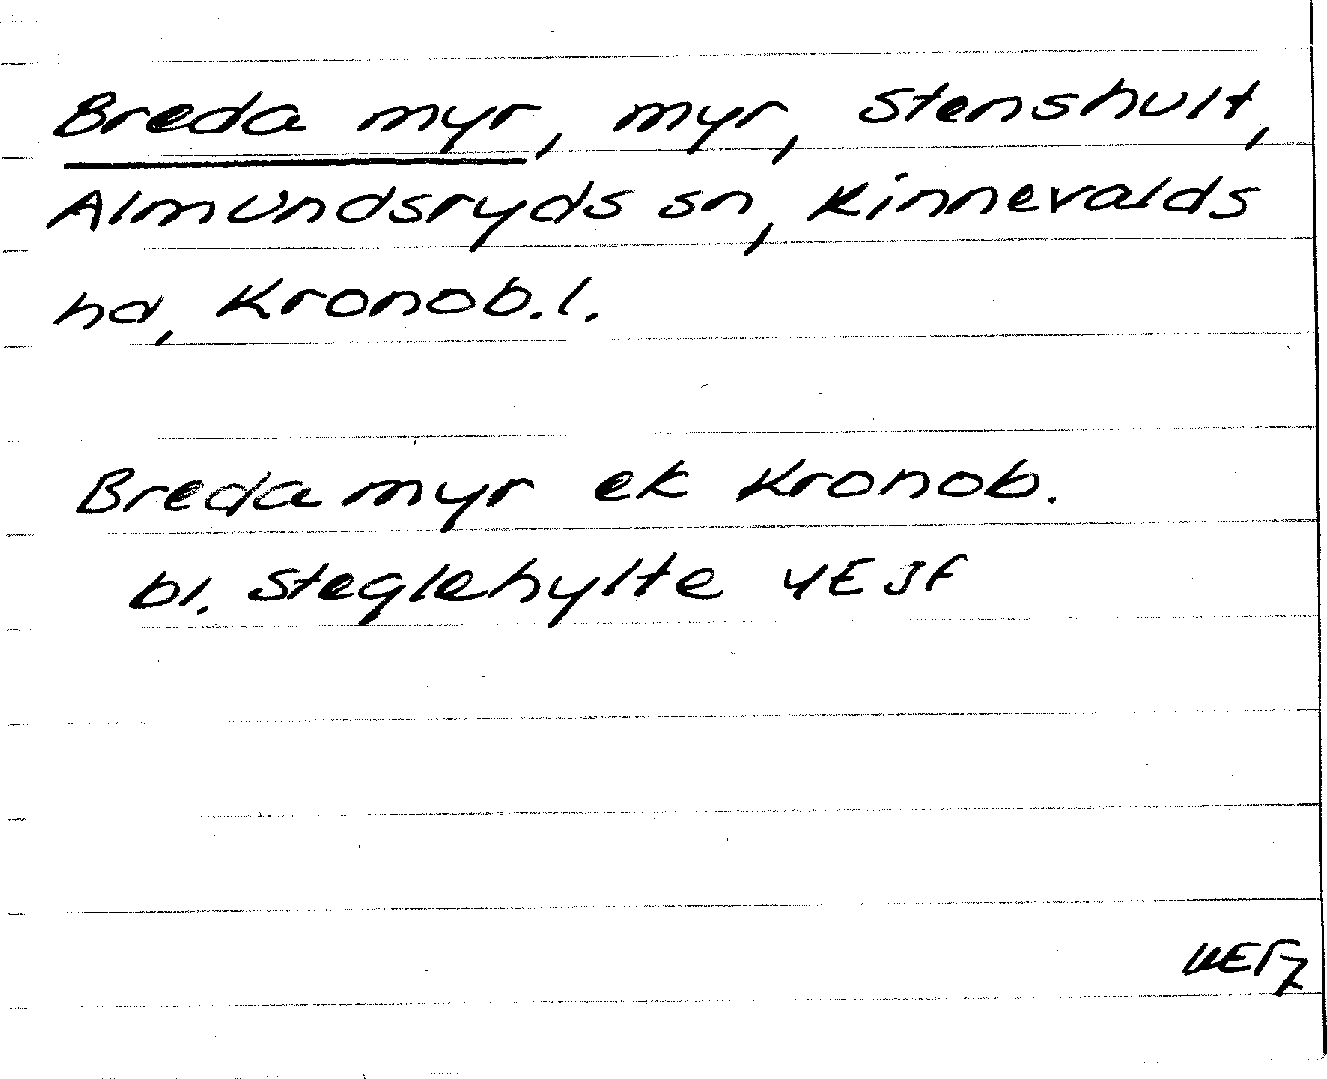 Breda myr, myr, Stenshult,
Almundsryds sn, Kinnevalds
hd, Kronob. l.
Breda myr ek Kronob.
bl. Steglehylte 4E5f